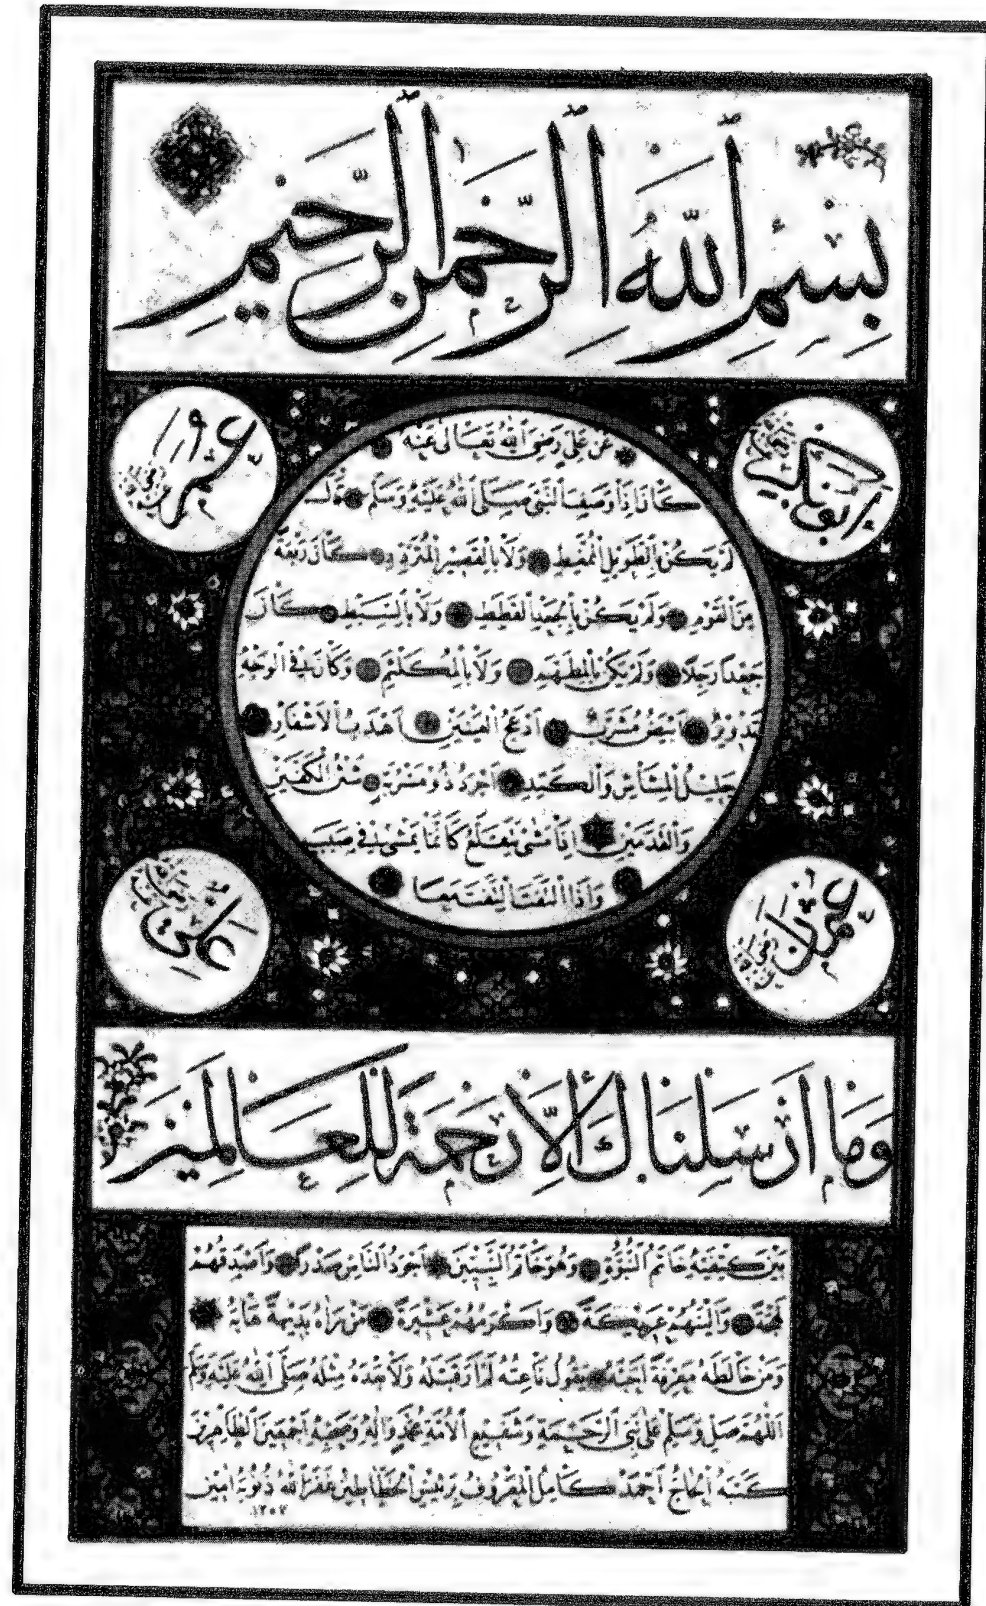 بِسْمِ اللّٰهِ الرَّحْمٰنِ الرَّحِيمِ
ابوبكر رضى الله عنه
عمر رضى الله عنه
عَنْ عَلِيٍّ رَضِيَ اللّٰهُ تَعَالَى عَنْهُ
كَانَ اِذَا وَصَفَ النَّبِيَّ صَلَّى اللّٰهُ عَلَيْهِ وَسَلَّمَ قَالَ
لَمْ يَكُنْ بِالطَّوِيلِ الْمُمَّغِطِ وَلَا بِالْقَصِيرِ الْمُتَرَدِّدِ كَانَ رَبْعَةً
مِنَ الْقَوْمِ وَلَمْ يَكُنْ بِالْجَعْدِ الْقَطَطِ وَلَا بِالسَّبِطِ كَانَ
جَعْدًا رَجِلًا وَلَمْ يَكُنْ بِالْمُطَهَّمِ وَلَا بِالْمُكَلْثَمِ وَكَانَ فِي الْوَجْهِ
تَدْوِيرٌ اَبْيَضُ مُشْرَبٌ اَدْعَجُ الْعَيْنَيْنِ اَهْدَبُ الْاَشْفَارِ
جَلِيلُ الْمُشَاشِ وَالْكَتَدِ اَجْرَدُ ذُو مَسْرُبَةٍ شَثْنُ الْكَفَّيْنِ
وَالْقَدَمَيْنِ اِذَا مَشَى يَتَقَلَّعُ كَاَنَّمَا يَمْشِي فِي صَبَبٍ
وَاِذَا الْتَفَتَ الْتَفَتَ مَعًا
عثمان رضى الله عنه
على رضى الله عنه
وَمَا اَرْسَلْنَاكَ اِلَّا رَحْمَةً لِلْعَالَمِينَ
بَيْنَ كَتِفَيْهِ خَاتَمُ النُّبُوَّةِ وَهُوَ خَاتَمُ النَّبِيِّينَ اَجْوَدُ النَّاسِ صَدْرًا وَاَصْدَقُهُمْ
لَهْجَةً وَاَلْيَنُهُمْ عَرِيكَةً وَاَكْرَمُهُمْ عَشِيرَةً مَنْ رَاٰهُ بَدِيهَةً هَابَهُ
وَمَنْ خَالَطَهُ مَعْرِفَةً اَحَبَّهُ يَقُولُ نَاعِتُهُ لَمْ اَرَ قَبْلَهُ وَلَا بَعْدَهُ مِثْلَهُ صَلَّى اللّٰهُ عَلَيْهِ وَسَلَّمَ
اَللّٰهُمَّ صَلِّ وَسَلِّمْ عَلَى نَبِيِّ الرَّحْمَةِ وَشَفِيعِ الْاُمَّةِ مُحَمَّدٍ وَاٰلِهِ وَصَحْبِهِ اَجْمَعِينَ الطَّاهِرِينَ
كَتَبَهُ الْحَاجُّ اَحْمَدْ كَامِلُ الْمَعْرُوفُ بِرَئِيسِ الْخَطَّاطِينَ غَفَرَ اللّٰهُ ذُنُوبَهُ اٰمِينَ
١٣٥٧